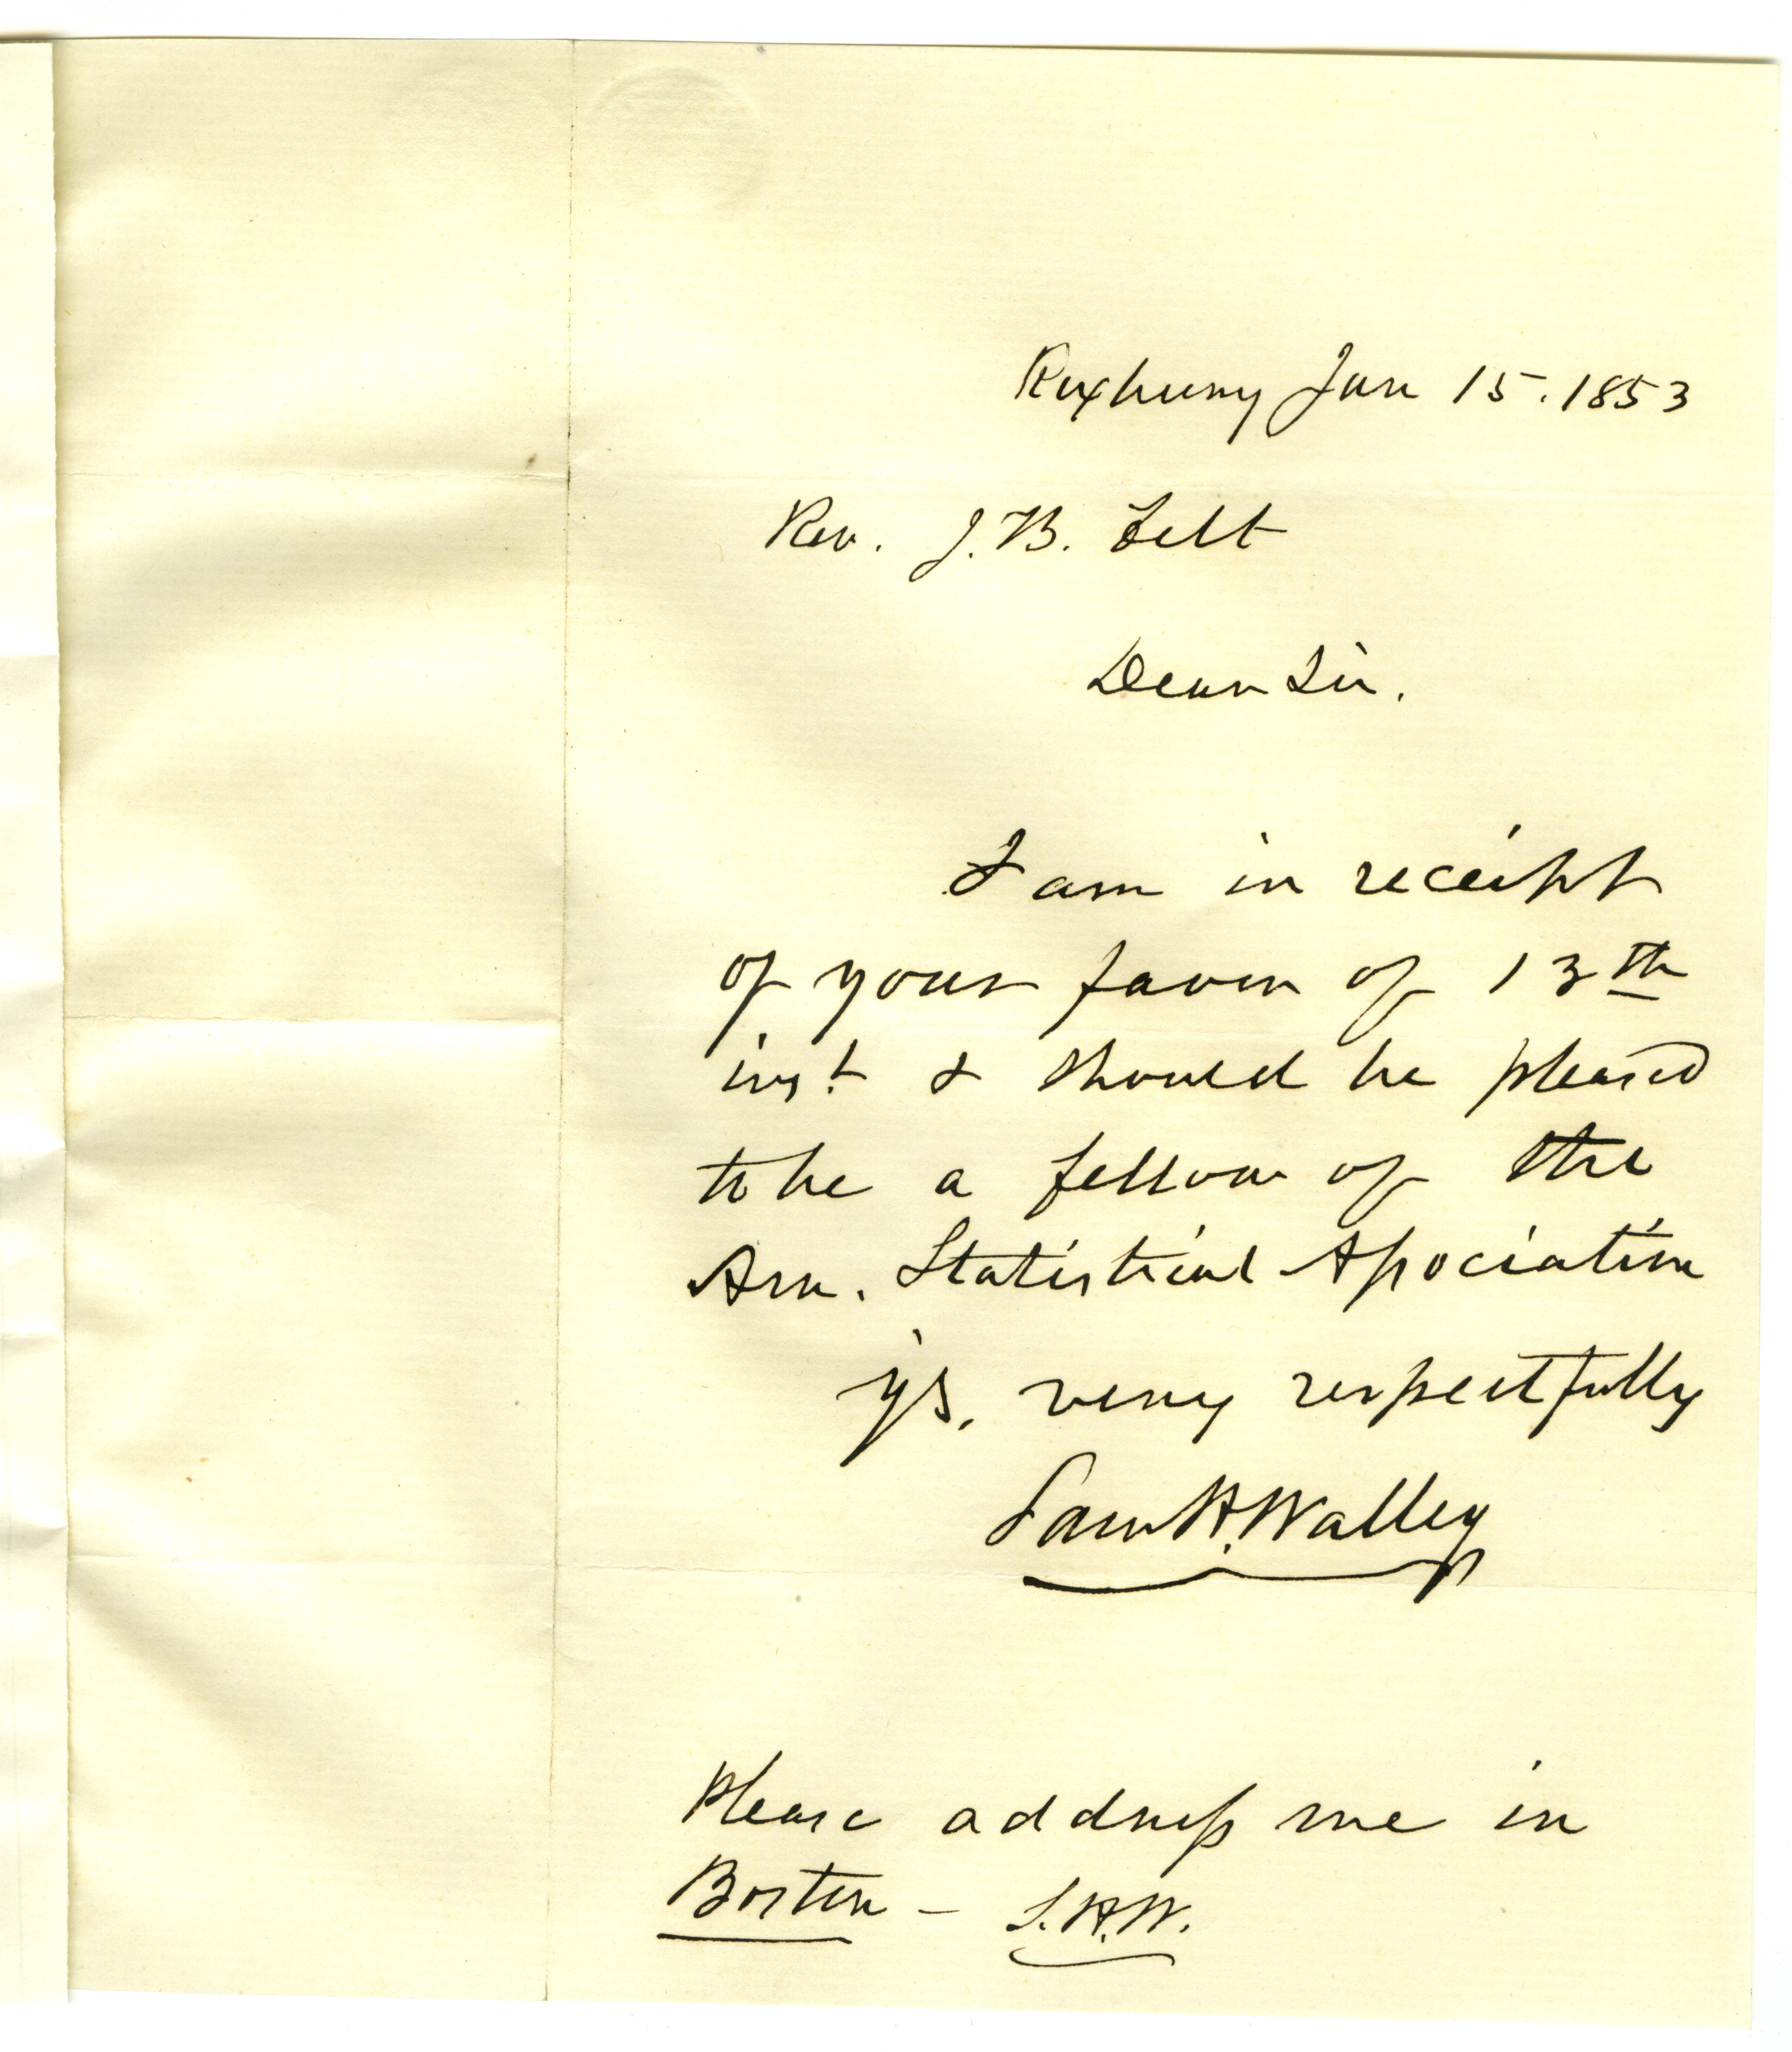 Roxbury Jan 15. 1853
Rev. J. B. Felt
Dear Sir.
I am in receipt
of your favor of 13th
inst & should be pleased
to be a fellow of the
Am. Statistical Association
Yrs. very respectfully
Sam H. Walley
Please address me in
Boston – S.H.W.